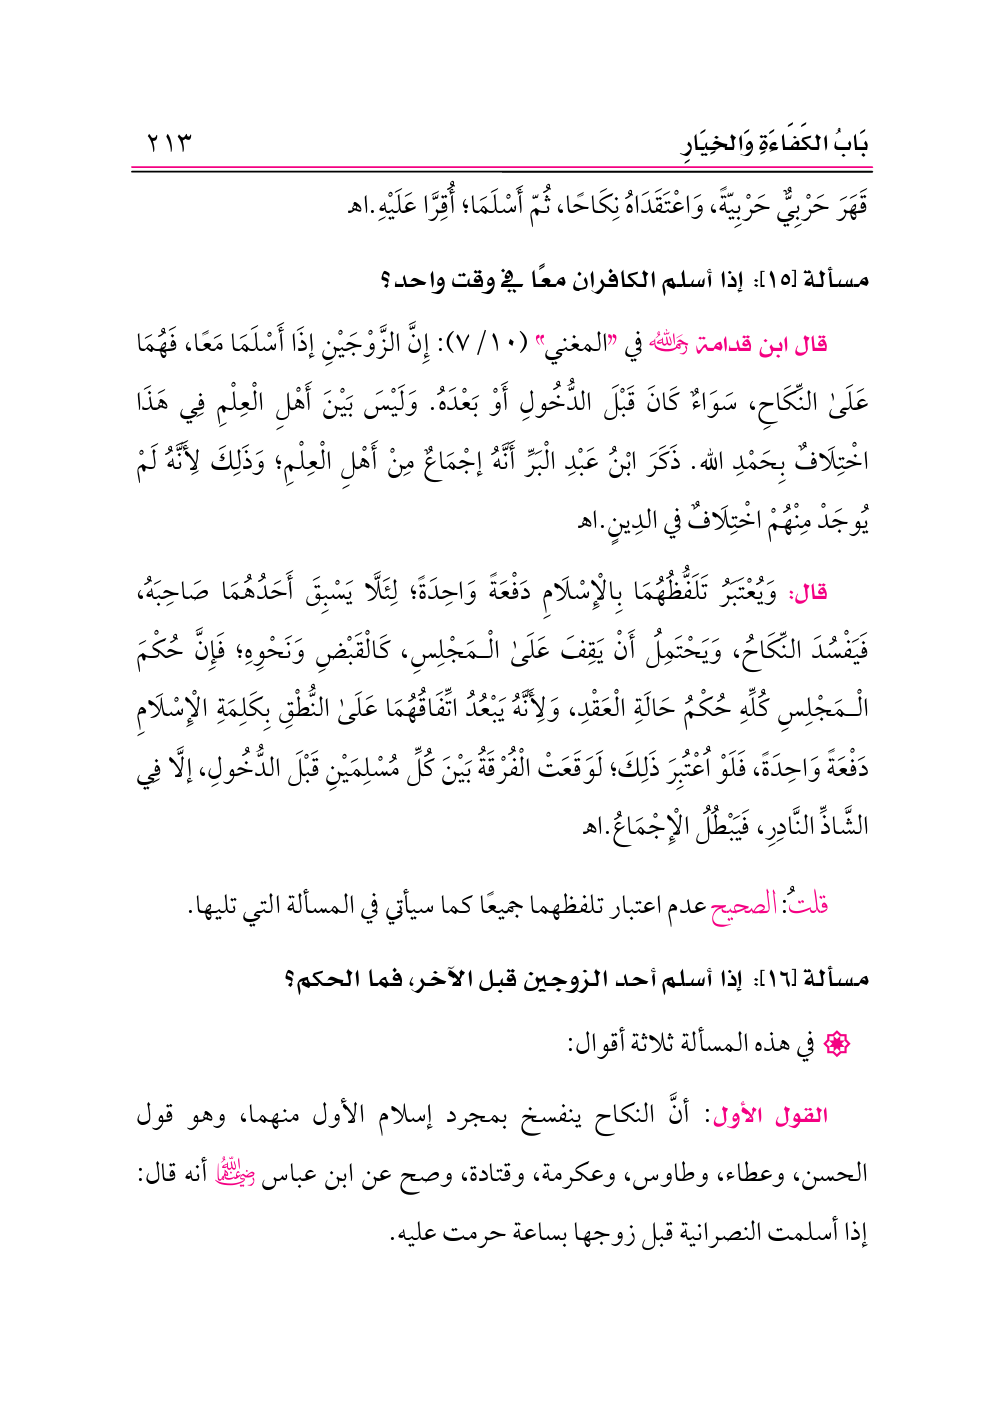 بَابُ الكَفَاءَةِ وَالخِيَارِ ٢١٣
قَهَرَ حَرْبِيٌّ حَرْبِيّةً، وَاعْتَقَدَاهُ نِكَاحًا، ثُمّ أَسْلَمَا؛ أُقِرَّا عَلَيْهِ.اهـ
مسألة [١٥]: إذا أسلم الكافران معًا في وقت واحد؟
قال ابن قدامة رحمه الله في "المغني" (١٠/ ٧): إِنَّ الزَّوْجَيْنِ إذَا أَسْلَمَا مَعًا، فَهُمَا
عَلَىٰ النِّكَاحِ، سَوَاءٌ كَانَ قَبْلَ الدُّخُولِ أَوْ بَعْدَهُ. وَلَيْسَ بَيْنَ أَهْلِ الْعِلْمِ فِي هَذَا
اخْتِلَافٌ بِحَمْدِ الله. ذَكَرَ ابْنُ عَبْدِ الْبَرِّ أَنَّهُ إجْمَاعٌ مِنْ أَهْلِ الْعِلْمِ؛ وَذَلِكَ لِأَنَّهُ لَمْ
يُوجَدْ مِنْهُمْ اخْتِلَافٌ في الدِينٍ.اهـ
قال: وَيُعْتَبَرُ تَلَفُّظُهُمَا بِالْإِسْلَامِ دَفْعَةً وَاحِدَةً؛ لِئَلَّا يَسْبِقَ أَحَدُهُمَا صَاحِبَهُ،
فَيَفْسُدَ النِّكَاحُ، وَيَحْتَمِلُ أَنْ يَقِفَ عَلَىٰ الْـمَجْلِسِ، كَالْقَبْضِ وَنَحْوِهِ؛ فَإِنَّ حُكْمَ
الْـمَجْلِسِ كُلِّهِ حُكْمُ حَالَةِ الْعَقْدِ، وَلِأَنَّهُ يَبْعُدُ اتِّفَاقُهُمَا عَلَىٰ النُّطْقِ بِكَلِمَةِ الْإِسْلَامِ
دَفْعَةً وَاحِدَةً، فَلَوْ اُعْتُبِرَ ذَلِكَ؛ لَوَقَعَتْ الْفُرْقَةُ بَيْنَ كُلِّ مُسْلِمَيْنِ قَبْلَ الدُّخُولِ، إلَّا فِي
الشَّاذِّ النَّادِرِ، فَيَبْطُلُ الْإِجْمَاعُ.اهـ
قلتُ: الصحيح عدم اعتبار تلفظهما جميعًا كما سيأتي في المسألة التي تليها.
مسألة [١٦]: إذا أسلم أحد الزوجين قبل الآخر، فما الحكم؟
في هذه المسألة ثلاثة أقوال:
القول الأول: أنَّ النكاح ينفسخ بمجرد إسلام الأول منهما، وهو قول
الحسن، وعطاء، وطاوس، وعكرمة، وقتادة، وصح عن ابن عباس رضي الله عنهما أنه قال:
إذا أسلمت النصرانية قبل زوجها بساعة حرمت عليه.